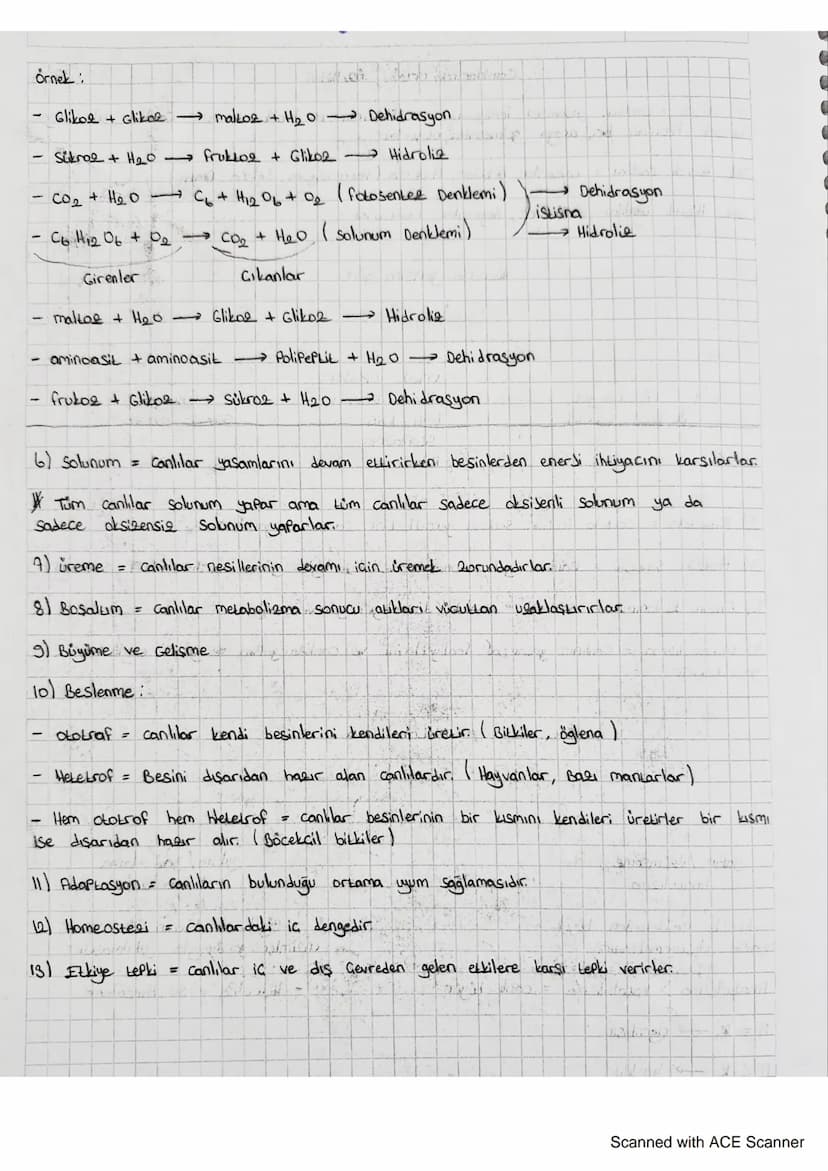 örnek :
- Glikoz + Glikoz → maltoz + H₂O → Dehidrasyon
- Sükroz + H₂O → fruktoz + Glikoz → Hidroliz
- CO₂ + H₂O → C₆ + H₁₂ O₆ + O₂ ( fotosentez Denklemi ) → Dehidrasyon
istisna
- C₆ H₁₂ O₆ + O₂ → CO₂ + H₂O ( solunum Denklemi ) → Hidroliz
Girenler Çıkanlar
- maltoz + H₂O → Glikoz + Glikoz → Hidroliz
- aminoasit + aminoasit → Polipeptit + H₂O → Dehidrasyon
- frukoz + Glikoz → sükroz + H₂O → Dehidrasyon
6) Solunum = canlılar yaşamlarını devam ettirirken besinlerden enerji ihtiyacını karşılarlar.
* Tüm canlılar solunum yapar ama tüm canlılar sadece oksijenli solunum ya da
sadece oksizensiz solunum yaparlar.
7) üreme = canlılar nesillerinin devamı için üremek zorundadırlar.
8) Boşalım = canlılar metabolizma sonucu atıkları vücuttan uzaklaştırırlar.
9) Büyüme ve Gelişme
10) Beslenme :
- ototraf = canlılar kendi besinlerini kendileri üretir. ( Bitkiler, öglena )
- Heletrof = Besini dışarıdan hazır alan canlılardır. ( Hayvanlar, Bazı mantarlar )
- Hem ototrof hem Heletrof = canlılar besinlerinin bir kısmını kendileri üretirler bir kısmı
ise dışarıdan hazır alır. ( Böcekçil bitkiler )
11) Adaptasyon = Canlıların bulunduğu ortama uyum sağlamasıdır.
12) Homeostezi = canlılardaki iç dengedir.
13) Etkiye tepki = canlılar iç ve dış çevreden gelen etkilere karşı tepki verirler.
Scanned with ACE Scanner